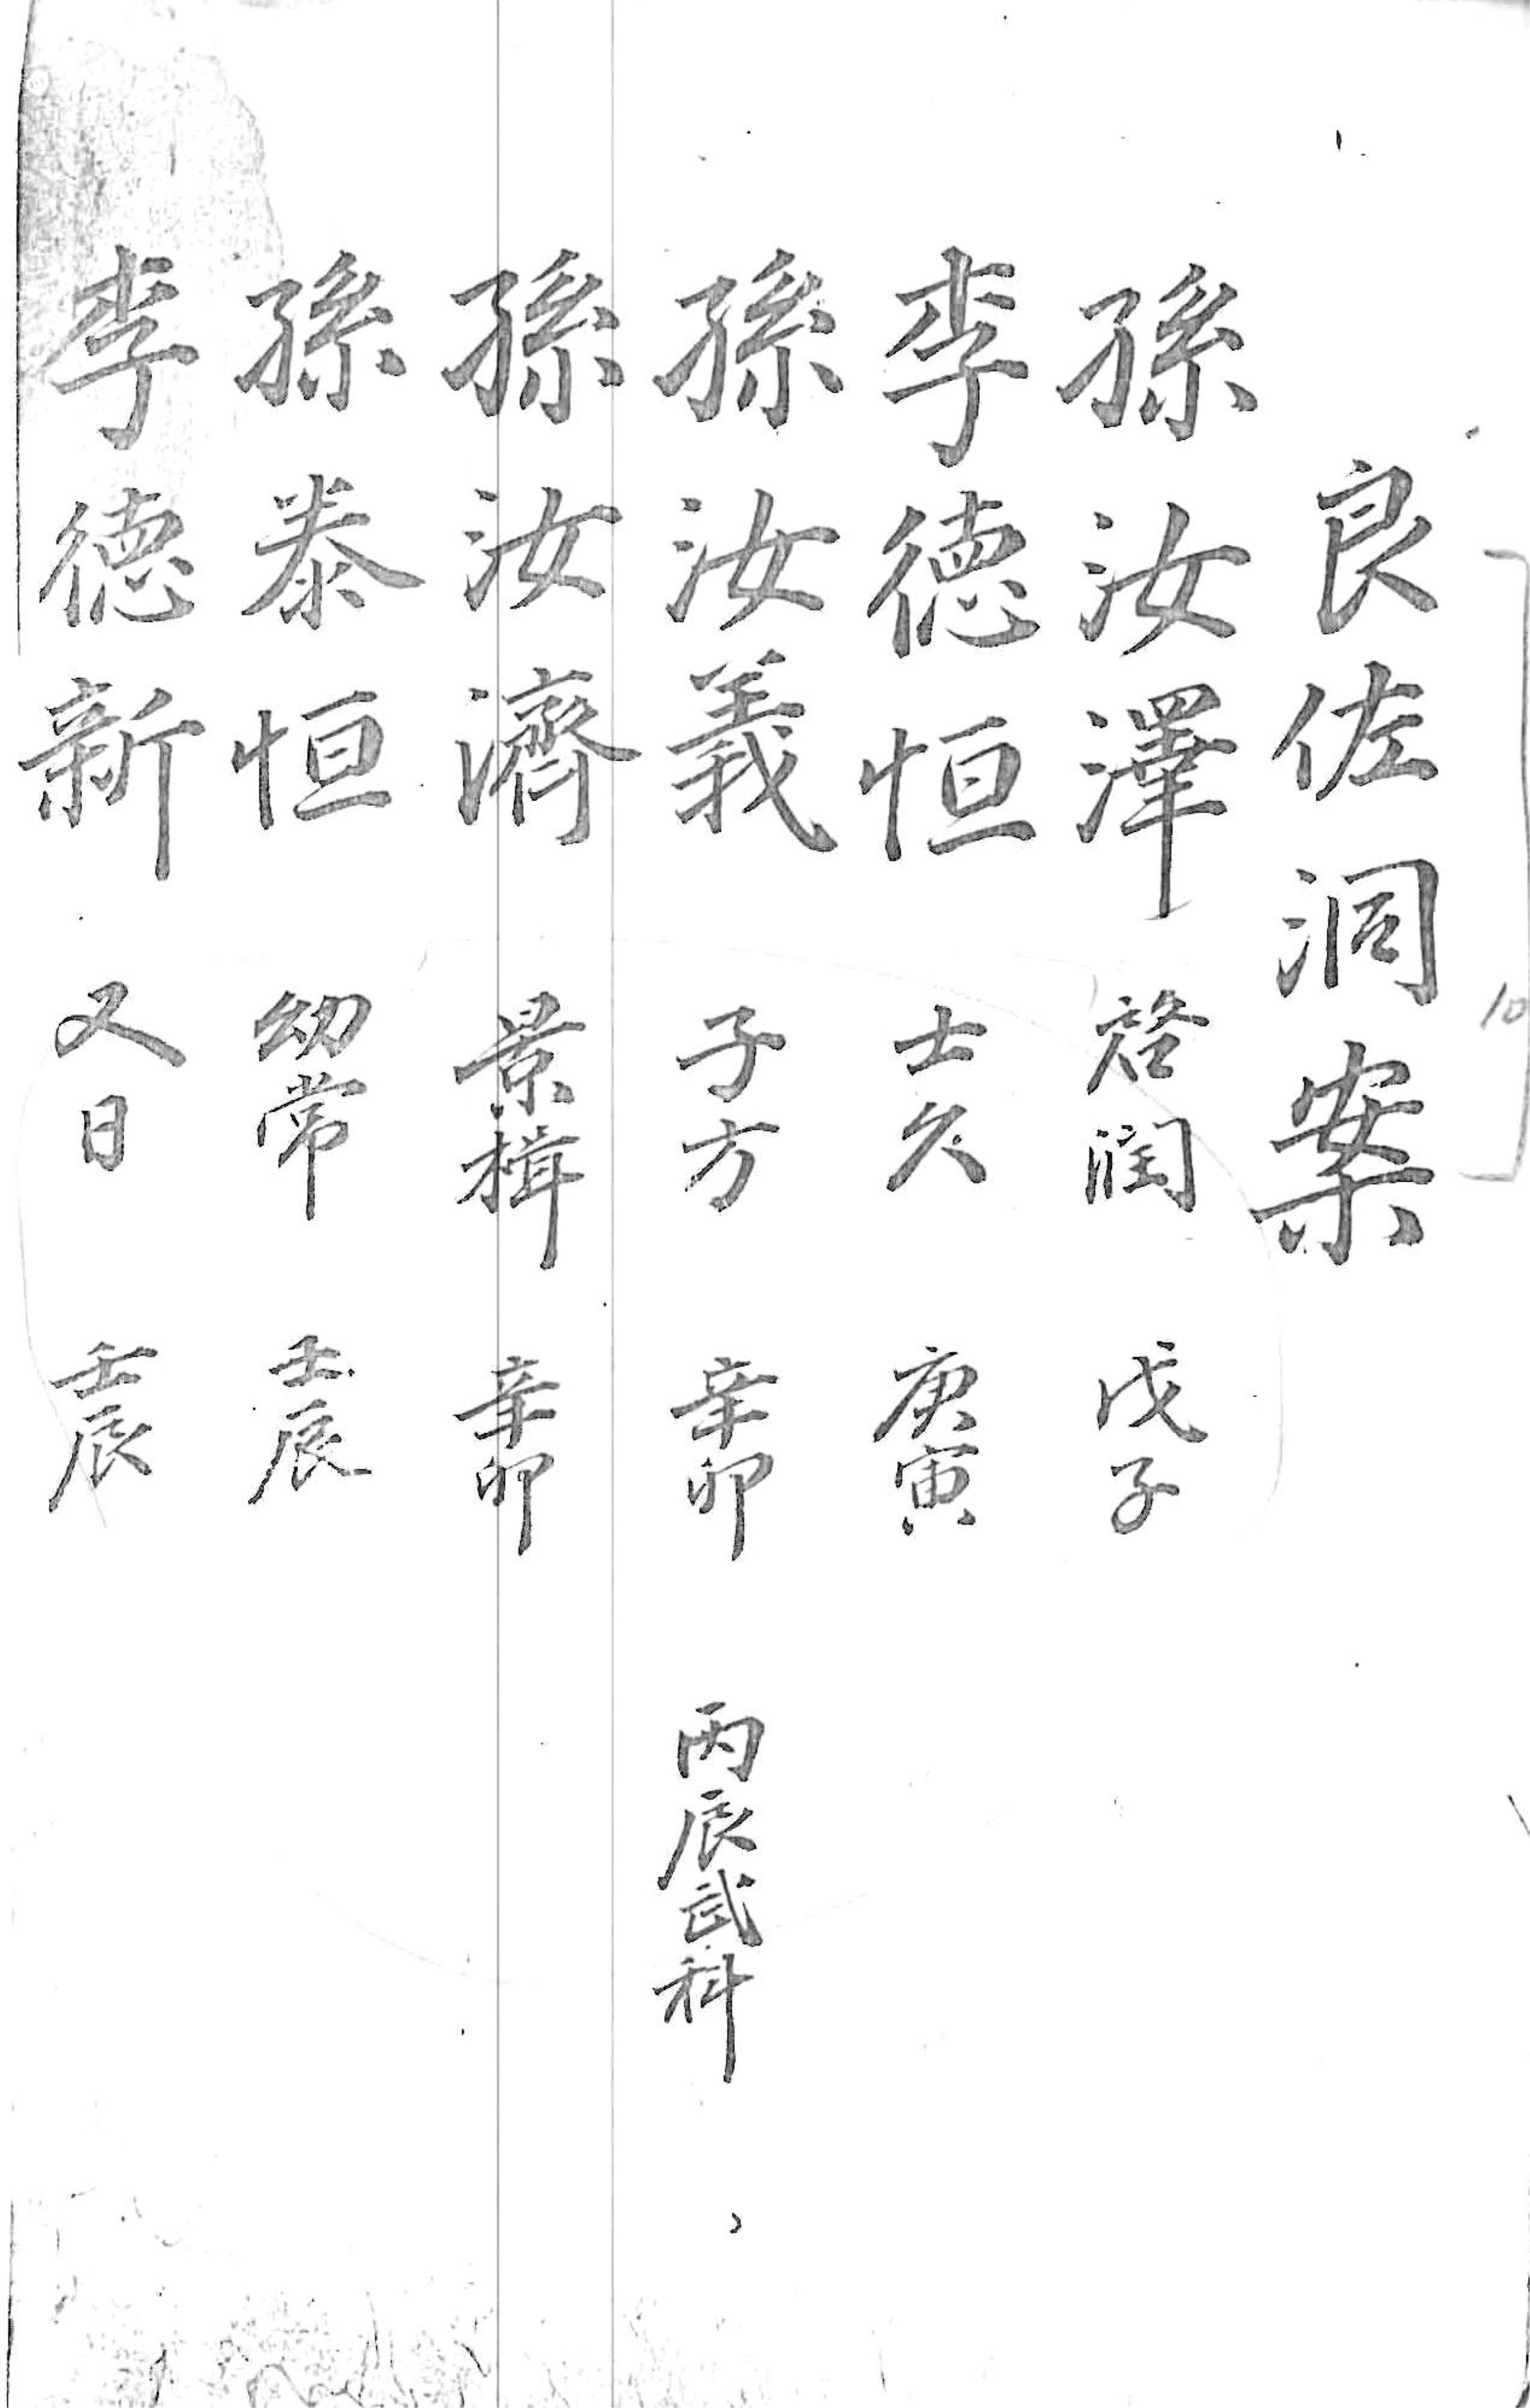 良佐洞案
孫汝澤 啓潤 戊子
李德恒 士久 庚寅
孫汝義 子方 辛卯 丙辰武科
孫汝濟 景楫 辛卯
孫泰恒 幼常 壬辰
李德新 又日 壬辰
10